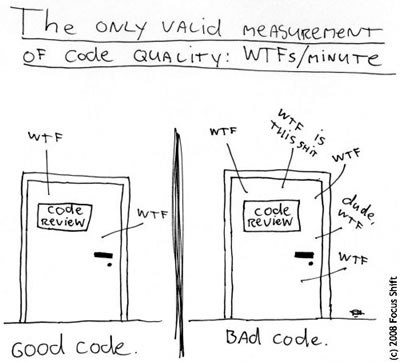 The ONLY VALID MEASUREMENT
OF Code QUALITY: WTFs/MINUTE
WTF
Code
REVIEW
WTF
GOOD Code.
WTF
WTF is
THIS SHIT
WTF
Code
REVIEW
dude,
WTF
WTF
BAd Code.
(c) 2008 Focus Shift